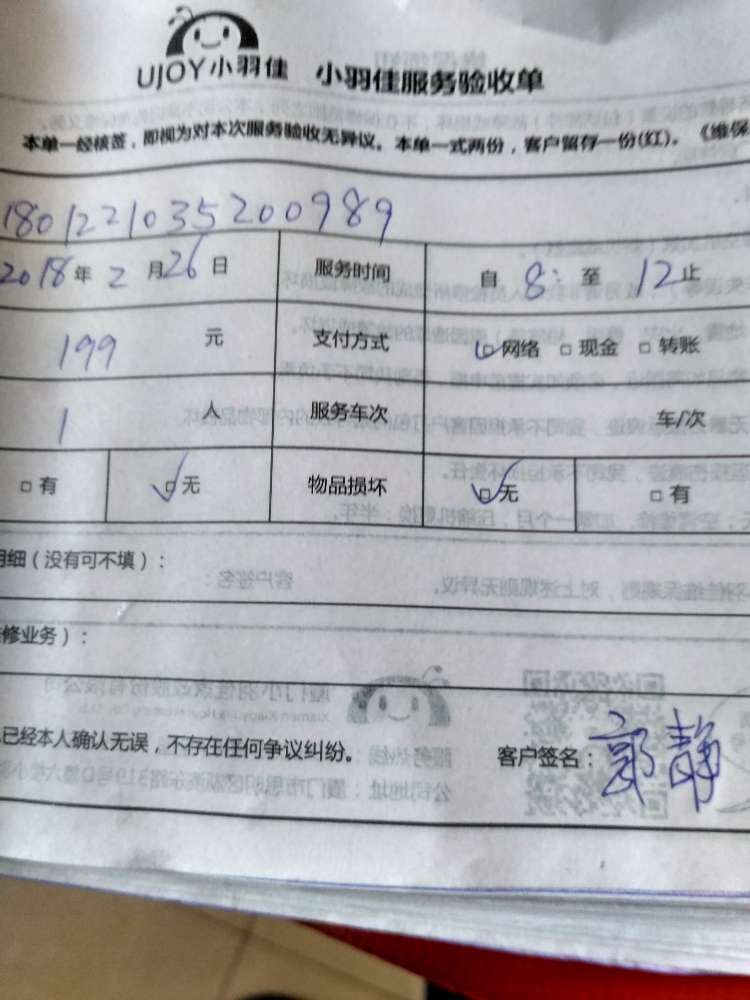 UJOY小羽佳 小羽佳服务验收单
本单一经核签，即视为对本次服务验收无异议。本单一式两份，客户留存一份(红)。《维保
180122103520098​9
2018年2月26日 服务时间 自8:至12止
199元 支付方式 ☑网络 □现金 □转账
1人 服务车次 车/次
□有 ☑无 物品损坏 ☑无 □有
明细（没有可不填）：
修业务）：
已经本人确认无误，不存在任何争议纠纷。 客户签名：郭静